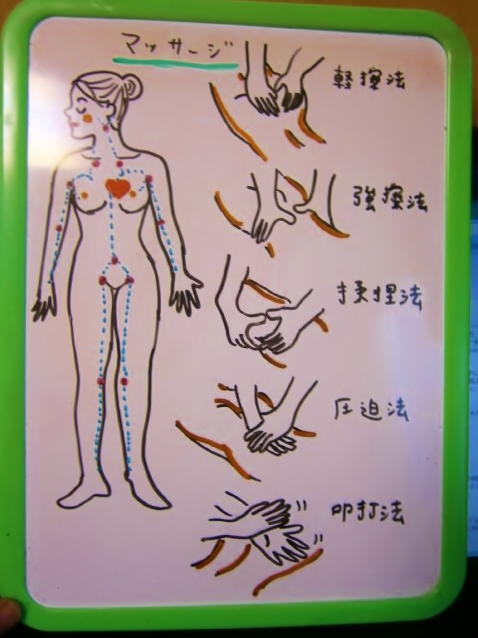 マッサージ
軽擦法
強擦法
揉捏法
圧迫法
叩打法